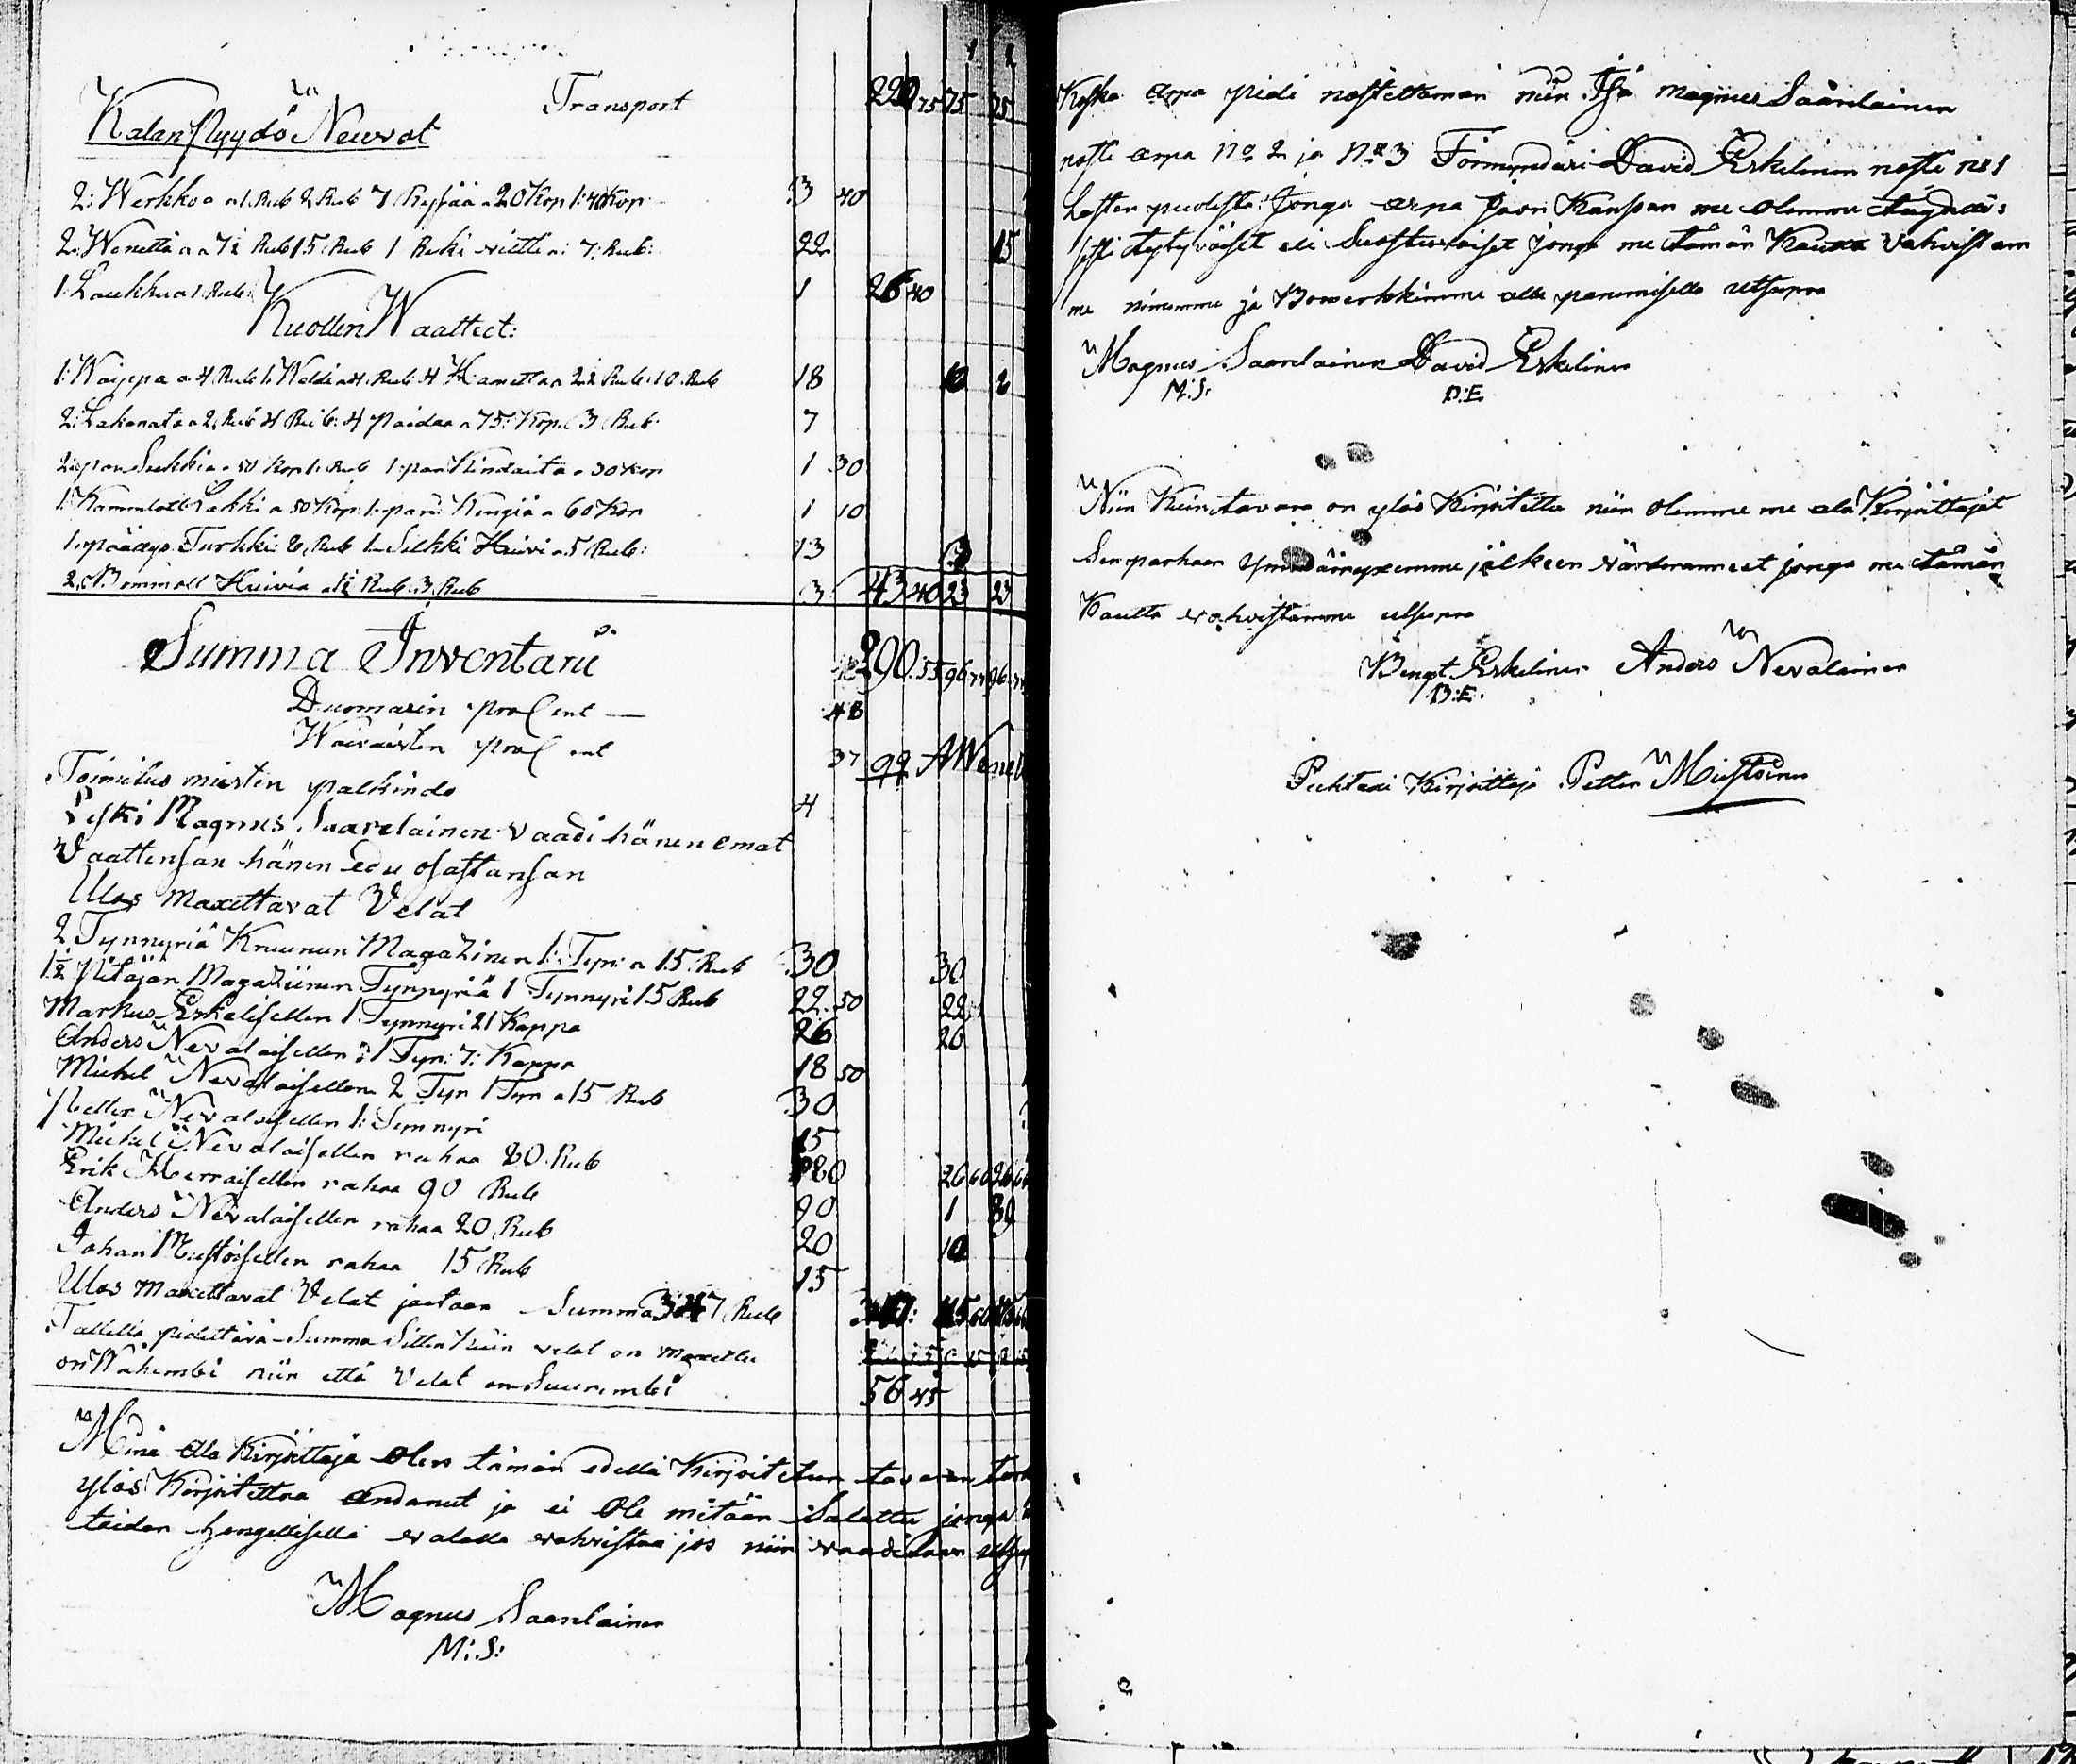 Transport 220 75 75 75
Kalan Pyydö Neuvot
2: Werkkoa a 1 Rub 2 Rub 7 Rysää a 20 Kop 1:40 Kop 3 40
2 Wenettä a 7½ Rub 15 Rub 1 Reki a: 7: Rub: 22 15
1: Laukku a 1 Rub: 1 26 40
Kuollen Waatteet:
1: Waippa a 4 Rub 1: Weldi a 4 Rub 4 Hametta a 2½ Rub: 10 Rub 18
2: Lakanata a 2 Rub 4 Rub: 4 paidaa a 75: Kop. 3 Rub 7
2: par Sukkia a 50 Kop 1: Rub 1: par Kindaita a 30 Kop 1 30
1: Lakki a 50 Kop: 1: pari Kengiä a 60 Kop 1 10
1: Turkki 1 Silkki Huivi a 5 Rub: 13
2: Bommull Huivia a 1½ Rub 3 Rub 3 43 40 23 23
Summa Inventarii 290 55 96 96
Duomarin procent 48
Waivaisten procent 37 92
Toimitus miesten palkindo 4
Leski Magnus Saarelainen vaadi hänen omat
Vaattensan hänen edu osastansan
Ulos Maxettavat Velat
2 Tynnyriä Kruunun Magazinin 1: Tyn: a 15 Rub 30 30
1½ Pitäjän Magaziinin Tynnyriä 1 Tynnyri 15 Rub 22 50 22
Markus Erkelisellen 1 Tynnyri 21 Kappa 26 26
Anders Nevalaisellen: 1 Tyn: 7: Kappa 18 50
Michel Nevalaisellen 2 Tyn 1 Tyn a 15 Rub 30
Petter Nevalaisellen 1: Tynnyri 15
Michel Nevalaisellen rahaa 80 Rub 80 26
Erik rahaa 90 Rub 90 1
Anders Nevalaisellen rahaa 20 Rub 20 10
Johan Mustoisellen rahaa 15 Rub 15
Ulos Maxettavat Velat jaetaan Summa 347 Rub
Tallella pidettävä Summa Sitten Kuin velat on maxettu
on Wähembi niin että Velat on Suurembi 56 45
Minä Ala Kirjoittaja Olen tämän edellä Kirjoitetun tavaran
ylös Kirjoitettaa andanut ja ei Ole mitään Salattu jonga
taidan hengellisellä valalla vahvistaa jos niin vaaditaan
Magnus Saarelainen
M:S:
Koska arpa pidi nostettaman niin Isä Magnus Saarelainen
nosti arpa No 2 ja No 3 Förmyndäri David Erkelinen nosti no 1
Lasten puolesta: Jonga arpa Jaon Kanssan me olemme täydelli:
sesti tytyväiset eli Suosturaiset jonga me tämän Kautta vahvistam
me nimemme ja Bomerkkimme alle panemisella utsupra
Magnus Saarelainen David Erkelinen
M:S: D:E
Niin Kuin tavara on ylös Kirjoitettu niin Olemme me ala Kirjoittajat
Sen parhaan ymmäryxemme jälkeen värderanneet jonga me tämän
Kautta vahvistamme utsupra
Bengt Erkelinen Anders Nevalainen
B:E.
Puhtaxi Kirjoittaja Petter Mustoinen